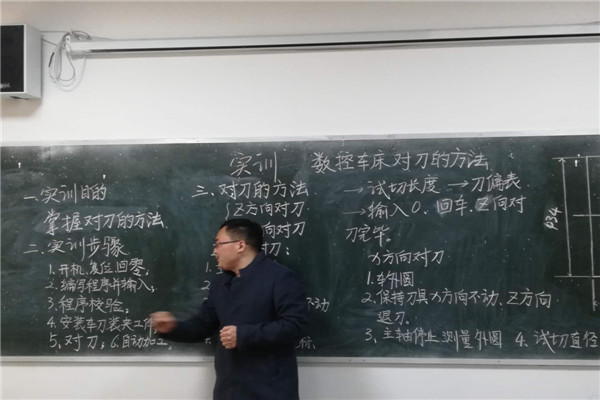 实训 数控车床对刀的方法
一、实训目的
掌握对刀的方法
二、实训步骤
1.开机、复位回零;
2.编写程序并输入;
3.程序校验;
4.安装车刀装夹工
5.对刀;6.自动加工。
三、对刀的方法
Z方向对刀
向对刀
刀:
不动
→试切长度→刀偏表
→输入0、回车、Z向对
刀完毕。
X方向对刀
1.车外圆
2、保持刀具X方向不动、Z方向
退刀。
3、主轴停止测量外圆 4.试切直径
φ34